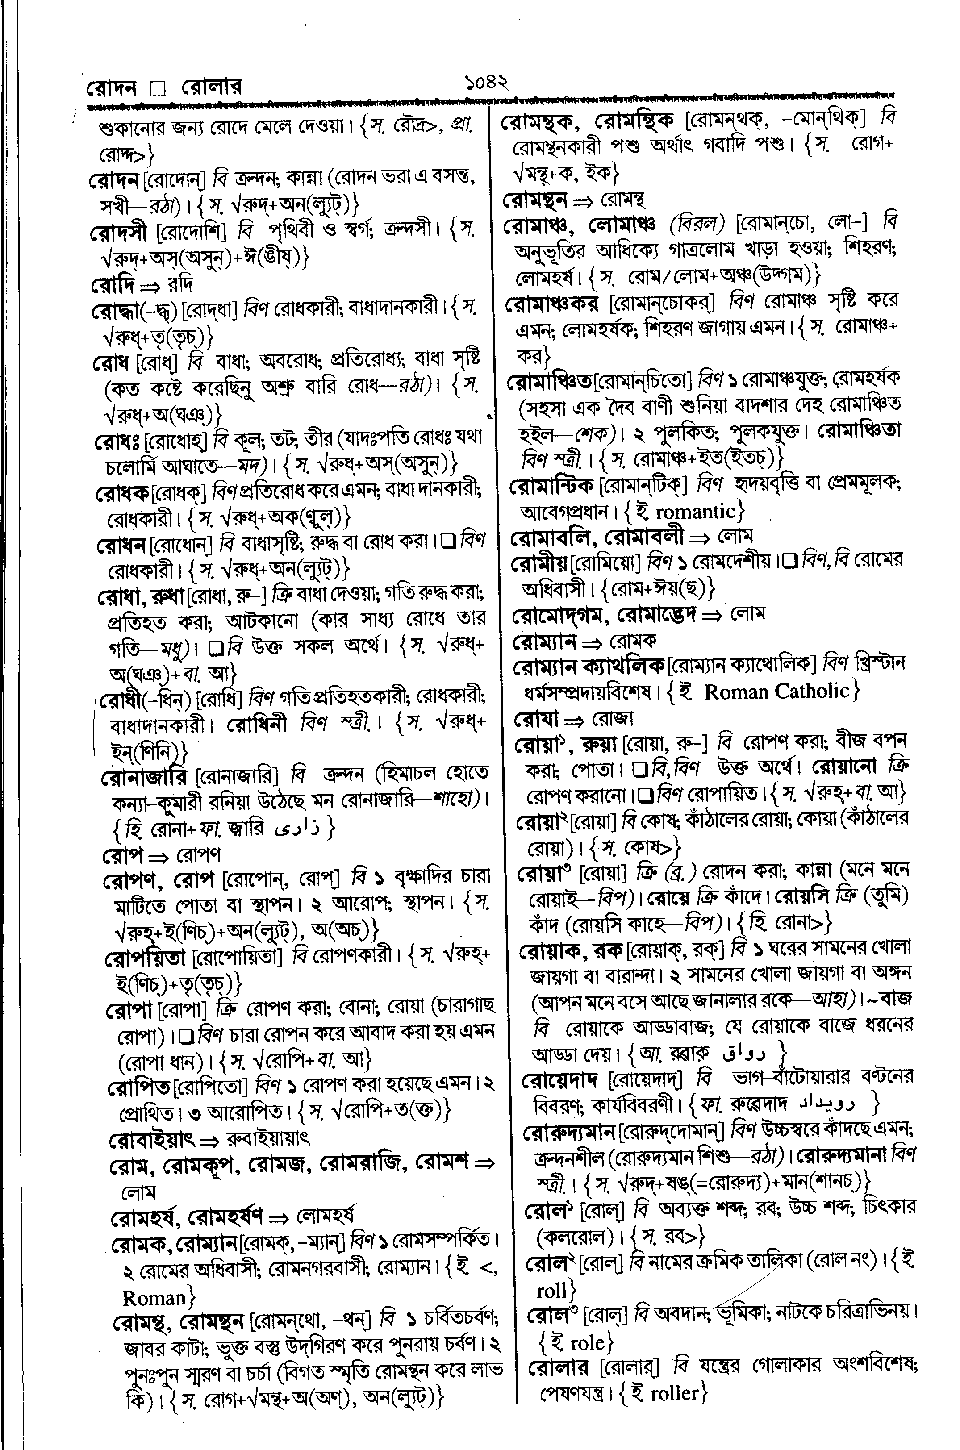 রোদন □ রোলার
১০৪২
শুকানোর জন্য রোদে মেলে দেওয়া। {স. রৌদ্র>, প্রা.
রোদ্দ>}
রোদন [রোদোন্] বি ক্রন্দন; কান্না (রোদন ভরা এ বসন্ত,
সখী—রঠা)। {স. √রুদ্+অন(ল্যুট্)}
রোদসী [রোদোশি] বি পৃথিবী ও স্বর্গ; ক্রন্দসী। {স.
√রুদ্+অস্(অসুন্)+ঈ(ঙীষ্)}
রোদি ⇒ রদি
রোদ্ধা(-দ্ধৃ) [রোদ্‌ধা] বিণ রোধকারী; বাধাদানকারী। {স.
√রুধ্+তৃ(তৃচ্)}
রোধ [রোধ্] বি বাধা; অবরোধ; প্রতিরোধ্য; বাধা সৃষ্টি
(কত কষ্টে করেছিনু অশ্রু বারি রোধ—রঠা)। {স.
√রুধ্+অ(ঘঞ্)}
রোধঃ [রোধোহ্] বি কূল; তট; তীর (যাদঃপতি রোধঃ যথা
চলোর্মি আঘাতে—মদ)। {স. √রুধ্+অস্(অসুন্)}
রোধক [রোধক্] বিণ প্রতিরোধ করে এমন; বাধা দানকারী;
রোধকারী। {স. √রুধ্+অক(ণ্বুল্)}
রোধন [রোধোন্] বি বাধাসৃষ্টি; রুদ্ধ বা রোধ করা। □ বিণ
রোধকারী। {স. √রুধ্+অন(ল্যুট্)}
রোধা, রুধা [রোধা, রু-] ক্রি বাধা দেওয়া; গতি রুদ্ধ করা;
প্রতিহত করা; আটকানো (কার সাধ্য রোধে তার
গতি—মধু)। □ বি উক্ত সকল অর্থে। {স. √রুধ্+
অ(ঘঞ্)+বা. আ}
রোধী(-ধিন্) [রোধি] বিণ গতি প্রতিহতকারী; রোধকারী;
বাধাদানকারী। রোধিনী বিণ স্ত্রী.। {স. √রুধ্+
ইন্(ণিনি)}
রোনাজারি [রোনাজারি] বি ক্রন্দন (হিমাচল হোতে
কন্যা-কুমারী রনিয়া উঠেছে মন রোনাজারি—শাহো)।
{হি. রোনা+ফা. জারি زاری }
রোপ ⇒ রোপণ
রোপণ, রোপ [রোপোন্, রোপ্] বি ১ বৃক্ষাদির চারা
মাটিতে পোতা বা স্থাপন। ২ আরোপ; স্থাপন। {স.
√রুহ্+ই(ণিচ্)+অন(ল্যুট্), অ(অচ্)}
রোপয়িতা [রোপোয়িতা] বি রোপণকারী। {স. √রুহ্+
ই(ণিচ্)+তৃ(তৃচ্)}
রোপা [রোপা] ক্রি রোপণ করা; বোনা; রোয়া (চারাগাছ
রোপা)। □ বিণ চারা রোপন করে আবাদ করা হয় এমন
(রোপা ধান)। {স. √রোপি+বা. আ}
রোপিত [রোপিতো] বিণ ১ রোপণ করা হয়েছে এমন। ২
প্রোথিত। ৩ আরোপিত। {স. √রোপি+ত(ক্ত)}
রোবাইয়াৎ ⇒ রুবাইয়ায়াৎ
রোম, রোমকূপ, রোমজ, রোমরাজি, রোমশ ⇒
লোম
রোমহর্ষ, রোমহর্ষণ ⇒ লোমহর্ষ
রোমক, রোম্যান [রোমক্, -ম্যান্] বিণ ১ রোমসম্পর্কিত।
২ রোমের অধিবাসী; রোমনগরবাসী; রোম্যান। {ই. <,
Roman}
রোমন্থ, রোমন্থন [রোমন্‌থো, -থন্] বি ১ চর্বিতচর্বণ;
জাবর কাটা; ভুক্ত বস্তু উদ্‌গিরণ করে পুনরায় চর্বণ। ২
পুনঃপুন স্মরণ বা চর্চা (বিগত স্মৃতি রোমন্থন করে লাভ
কি)। {স. রোগ+√মন্থ+অ(অণ্), অন(ল্যুট্)}
রোমন্থক, রোমন্থিক [রোমন্‌থক্, -মোন্‌থিক্] বি
রোমন্থনকারী পশু অর্থাৎ গবাদি পশু। {স. রোগ+
√মন্থ্+ক, ইক}
রোমন্থন ⇒ রোমন্থ
রোমাঞ্চ, লোমাঞ্চ (বিরল) [রোমান্‌চো, লো-] বি
অনুভূতির আধিক্যে গাত্রলোম খাড়া হওয়া; শিহরণ;
লোমহর্ষ। {স. রোম/লোম+অঞ্চ(উদ্গম)}
রোমাঞ্চকর [রোমান্‌চোকর্] বিণ রোমাঞ্চ সৃষ্টি করে
এমন; লোমহর্ষক; শিহরণ জাগায় এমন। {স. রোমাঞ্চ+
কর}
রোমাঞ্চিত [রোমান্‌চিতো] বিণ ১ রোমাঞ্চযুক্ত; রোমহর্ষক
(সহসা এক দৈব বাণী শুনিয়া বাদশার দেহ রোমাঞ্চিত
হইল—শেক)। ২ পুলকিত; পুলকযুক্ত। রোমাঞ্চিতা
বিণ স্ত্রী.। {স. রোমাঞ্চ+ইত(ইতচ্)}
রোমান্টিক [রোমান্‌টিক্] বিণ হৃদয়বৃত্তি বা প্রেমমূলক;
আবেগপ্রধান। {ই. romantic}
রোমাবলি, রোমাবলী ⇒ লোম
রোমীয় [রোমিয়ো] বিণ ১ রোমদেশীয়। □ বিণ, বি রোমের
অধিবাসী। {রোম+ঈয়(ছ)}
রোমোদ্‌গম, রোমোদ্ভেদ ⇒ লোম
রোম্যান ⇒ রোমক
রোম্যান ক্যাথলিক [রোম্যান ক্যাথোলিক্] বিণ খ্রিস্টান
ধর্মসম্প্রদায়বিশেষ। {ই. Roman Catholic}
রোযা ⇒ রোজা
রোয়া১, রুয়া [রোয়া, রু-] বি রোপণ করা; বীজ বপন
করা; পোতা। □ বি, বিণ উক্ত অর্থে। রোয়ানো ক্রি
রোপণ করানো। □ বিণ রোপায়িত। {স. √রুহ্+বা. আ}
রোয়া২ [রোয়া] বি কোষ; কাঁঠালের রোয়া; কোয়া (কাঁঠালের
রোয়া)। {স. কোষ>}
রোয়া৩ [রোয়া] ক্রি (ব্র.) রোদন করা; কান্না (মনে মনে
রোয়াই—বিপ)। রোয়ে ক্রি কাঁদে। রোয়সি ক্রি (তুমি)
কাঁদ (রোয়সি কাহে—বিপ)। {হি. রোনা>}
রোয়াক, রক [রোয়াক্, রক্] বি ১ ঘরের সামনের খোলা
জায়গা বা বারান্দা। ২ সামনের খোলা জায়গা বা অঙ্গন
(আপন মনে বসে আছে জানালার রকে—আহা)। ~বাজ
বি রোয়াকে আড্ডাবাজ; যে রোয়াকে বাজে ধরনের
আড্ডা দেয়। {আ. রৱাক় رواق }
রোয়েদাদ [রোয়েদাদ্] বি ভাগ-বাঁটোয়ারার বণ্টনের
বিবরণ; কার্যবিবরণী। {ফা. রুৱেদাদ رویداد }
রোরুদ্যমান [রোরুদ্‌দোমান্] বিণ উচ্চস্বরে কাঁদছে এমন;
ক্রন্দনশীল (রোরুদ্যমান শিশু—রঠা)। রোরুদ্যমানা বিণ
স্ত্রী.। {স. √রুদ্+যঙ্(=রোরুদ্য)+মান(শানচ্)}
রোল১ [রোল্] বি অব্যক্ত শব্দ; রব; উচ্চ শব্দ; চিৎকার
(কলরোল)। {স. রব>}
রোল২ [রোল্] বি নামের ক্রমিক তালিকা (রোল নং)। {ই.
roll}
রোল৩ [রোল্] বি অবদান; ভূমিকা; নাটকে চরিত্রাভিনয়।
{ই. role}
রোলার [রোলার্] বি যন্ত্রের গোলাকার অংশবিশেষ;
পেষণযন্ত্র। {ই. roller}